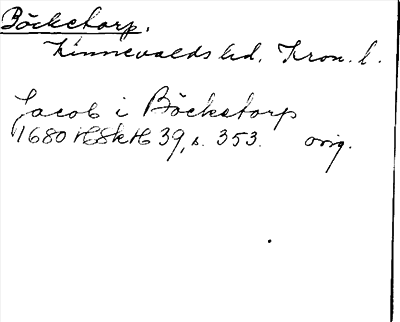 Böcketorp.
Kinnevalds hd. Kron. l.
Jacob i Böckstorp
1680 HSkH 39, s. 353. orig.